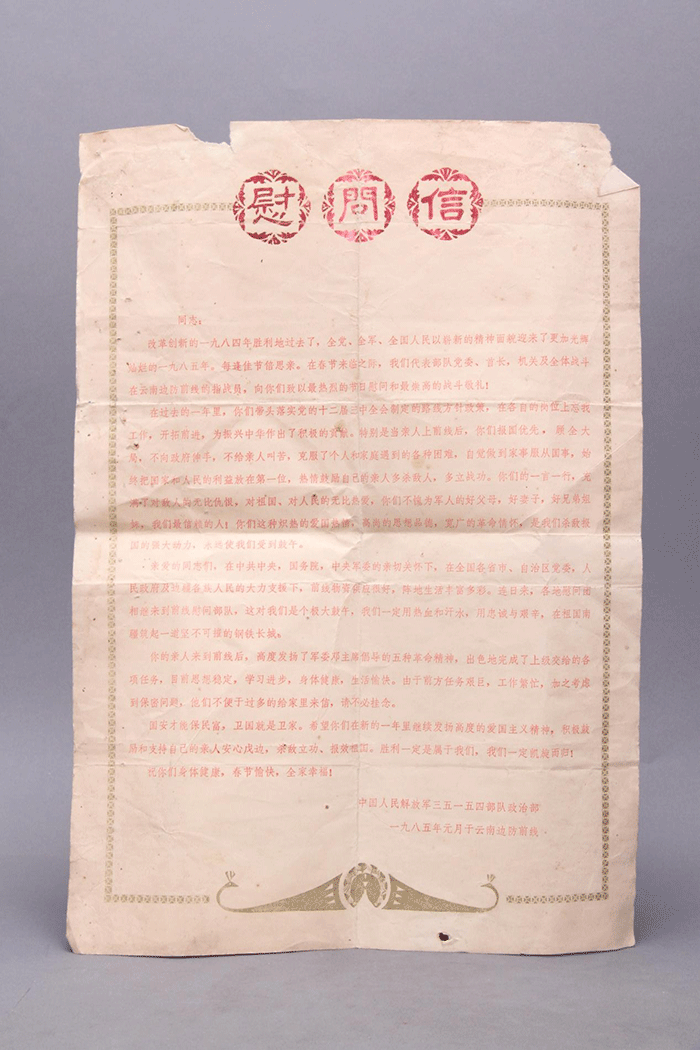 慰問信
同志:
改革创新的一九八四年胜利地过去了,全党、全军、全国人民以崭新的精神面貌迎来了更加光辉
灿烂的一九八五年。每逢佳节倍思亲。在春节来临之际,我们代表部队党委、首长,机关及全体战斗
在云南边防前线的指战员,向你们致以最热烈的节日慰问和最崇高的战斗敬礼!
在过去的一年里,你们带头落实党的十二届三中全会制定的路线方针政策,在各自的岗位上忘我
工作,开拓前进,为振兴中华作出了积极的贡献。特别是当亲人上前线后,你们报国优先,顾全大
局,不向政府伸手,不给亲人叫苦,克服了个人和家庭遇到的各种困难,自觉做到家事服从国事,始
终把国家和人民的利益放在第一位,热情鼓励自己的亲人多杀敌人,多立战功。你们的一言一行,充
满了对敌人的无比仇恨,对祖国、对人民的无比热爱,你们不愧为军人的好父母,好妻子,好兄弟姐
妹,我们最信赖的人!你们这种炽热的爱国热情,高尚的思想品德,宽广的革命情怀,是我们杀敌报
国的强大动力,永远使我们受到鼓午。
亲爱的同志们,在中共中央,国务院,中央军委的亲切关怀下,在全国各省市、自治区党委,人
民政府及边疆各族人民的大力支援下,前线物资供应很好,阵地生活丰富多彩。连日来,各地慰问团
相继来到前线慰问部队,这对我们是个极大鼓午,我们一定用热血和汗水,用忠诚与艰辛,在祖国南
疆筑起一道坚不可摧的钢铁长城。
你的亲人来到前线后,高度发扬了军委邓主席倡导的五种革命精神,出色地完成了上级交给的各
项任务,目前思想稳定,学习进步,身体健康,生活愉快。由于前方任务艰巨,工作繁忙,加之考虑
到保密问题,他们不便于过多的给家里来信,请不必挂念。
国安才能保民富,卫国就是卫家。希望你们在新的一年里继续发扬高度的爱国主义精神,积极鼓
励和支持自己的亲人安心戍边,杀敌立功、报效祖国。胜利一定是属于我们,我们一定凯旋而归!
祝你们身体健康,春节愉快,全家幸福!
中国人民解放军三五一五四部队政治部
一九八五年元月于云南边防前线